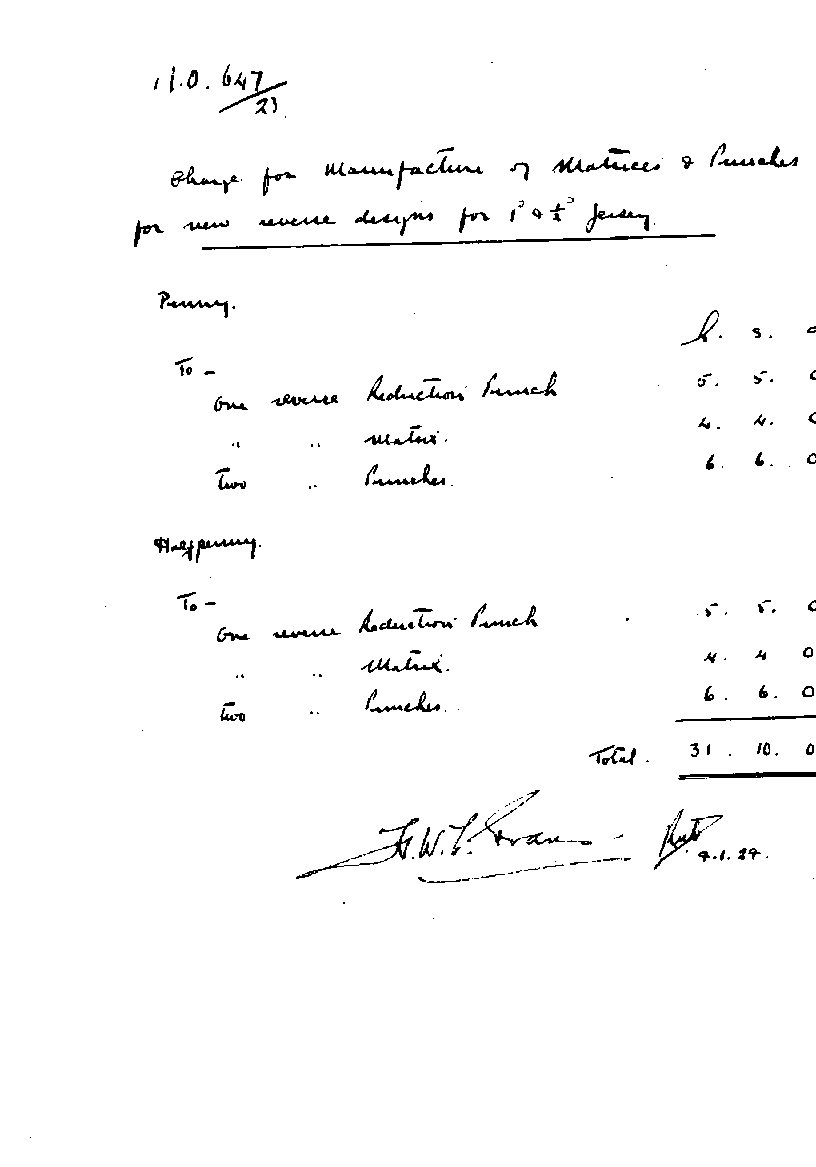 11.0. 647/23
Charge for Manufacture of Matrices & Punches
for new reverse designs for 1ᴰ & ½ᴰ Jersey.
Penny.
£. s. d
To –
One reverse Reduction Punch 5. 5. 0
" " Matrix. 4. 4. 0
Two " Punches. 6. 6. 0
Halfpenny.
To –
One reverse Reduction Punch 5. 5. 0
" " Matrix. 4. 4 0
Two " Punches. 6. 6. 0
Total. 31. 10. 0
W. Evans
9.1.24.